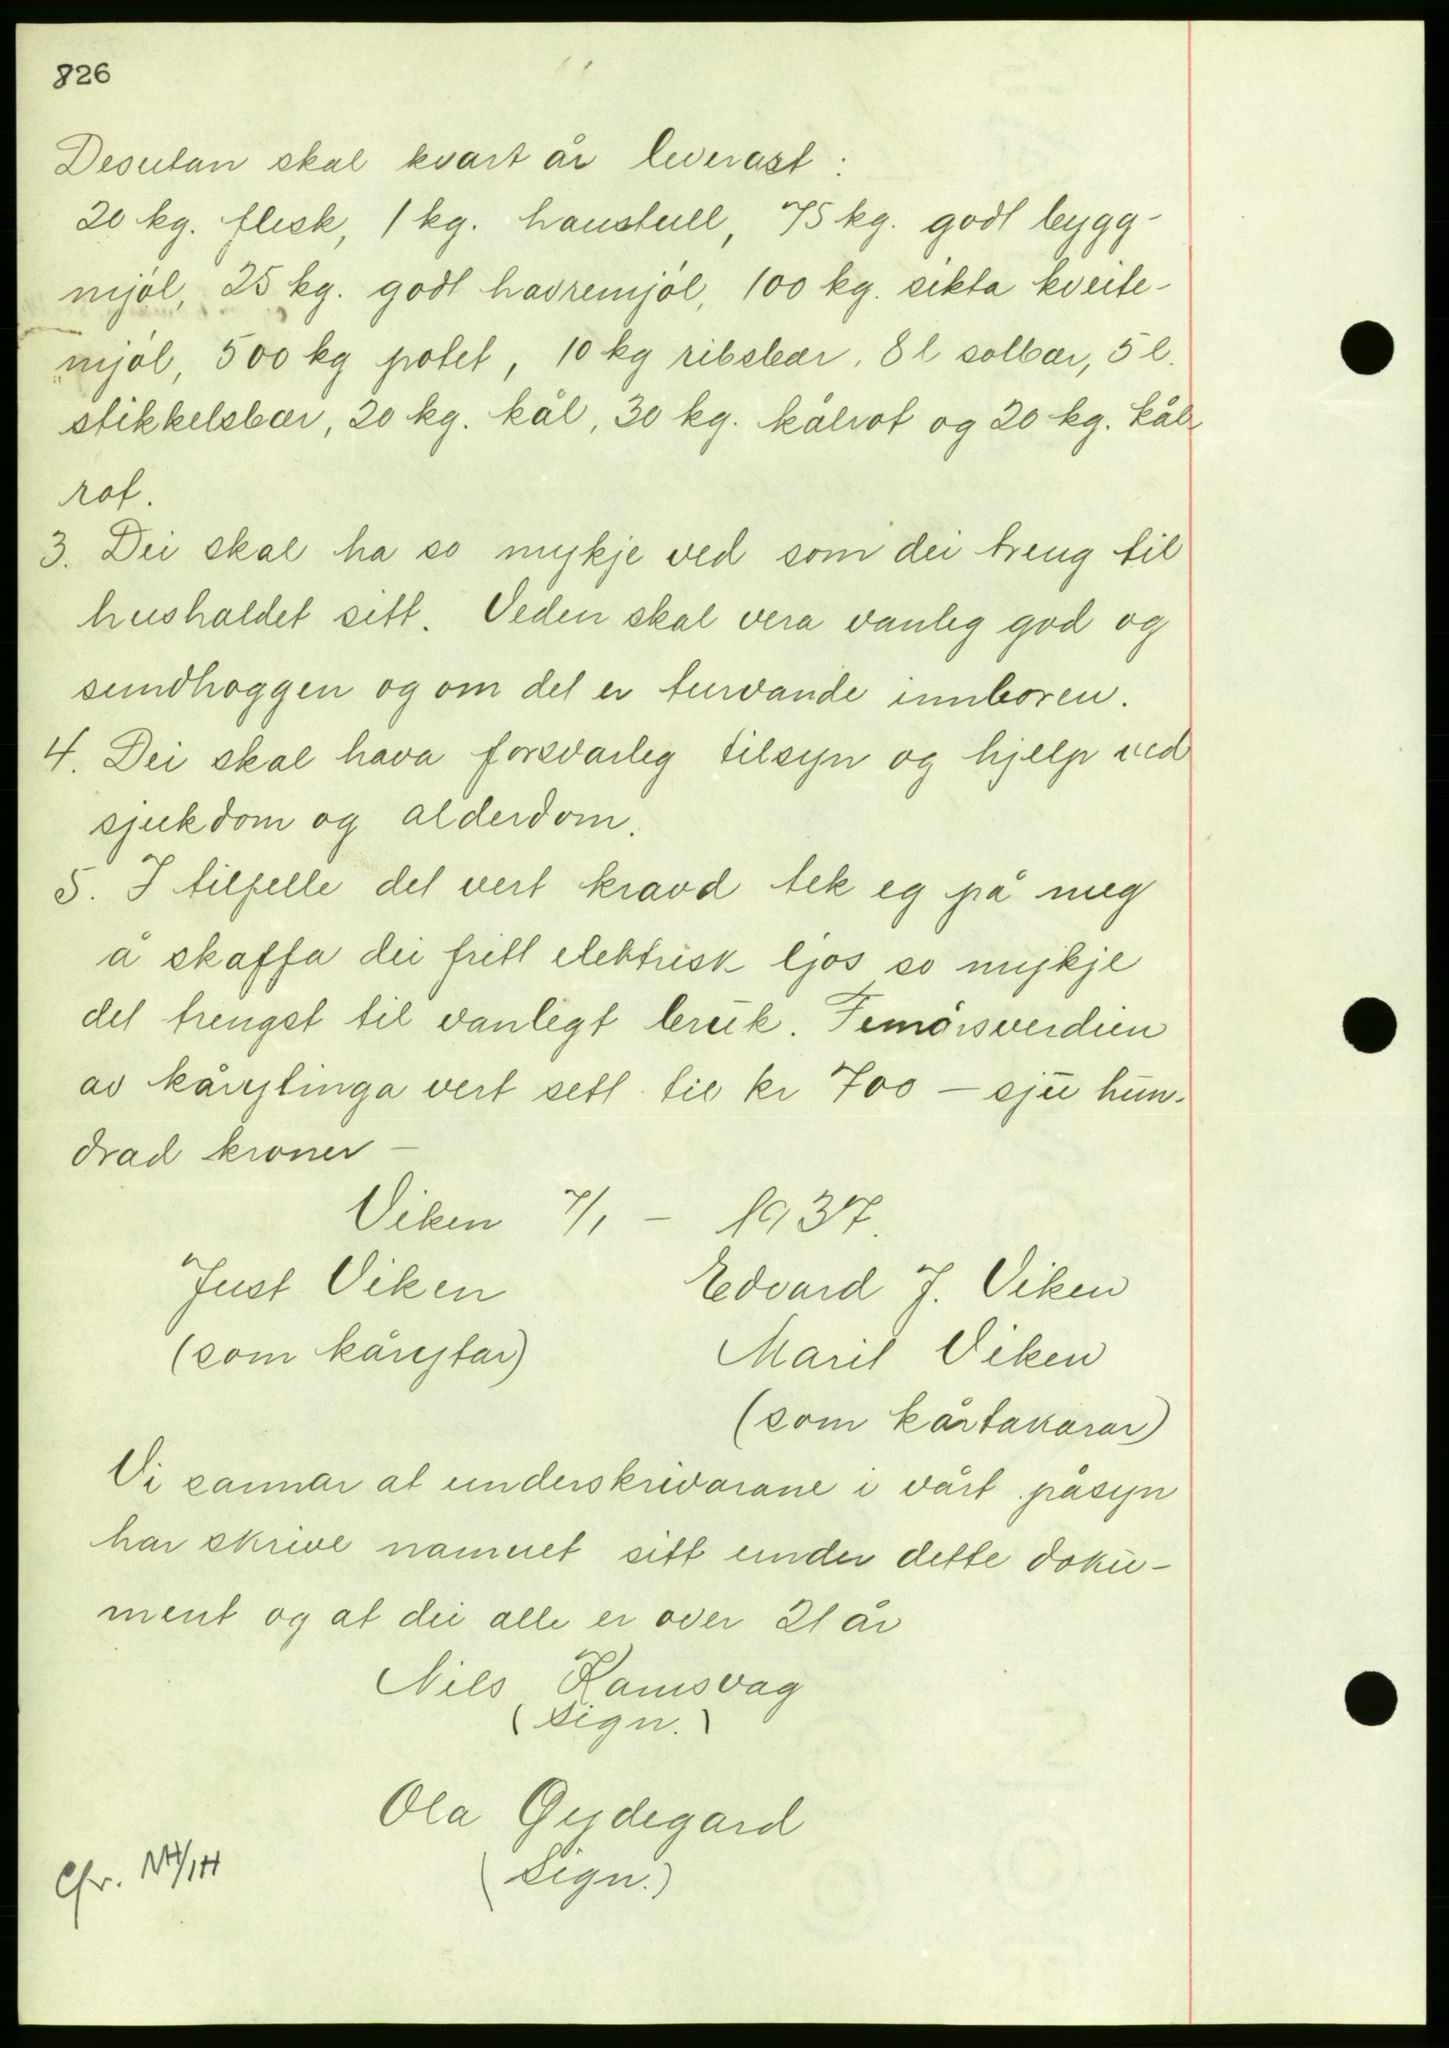 826
Desutan skal kvart år leverast:
20 kg. flesk, 1 kg. haustull, 75 kg. godt bygg-
mjøl, 25 kg. godt havremjøl, 100 kg. sikta kveite-
mjøl, 500 kg potet, 10 kg ribsbær, 8 l solbær, 5 l.
stikkelsbær, 20 kg. kål, 30 kg. kålrot og 20 kg. kål-
rot.
3. Dei skal ha so mykje ved som dei treng til
hushaldet sitt. Veden skal vera vanleg god og
sundhoggen og om det er turvande innboren.
4. Dei skal hava forsvarleg tilsyn og hjelp ved
sjukdom og alderdom.
5. I tilfelle det vert kravd tek eg på meg
å skaffa dei fritt elektrisk ljos so mykje
det trengst til vanlegt bruk. Femårsverdien
av kårytinga vert sett til kr 700 — sju hun-
drad kroner —
Viken 7/1 - 1937.
Just Viken Edvard J. Viken
(som kårytar) Marit Viken
(som kårtakarar)
Vi sannar at underskrivarane i vårt påsyn
har skrive namnet sitt under dette doku-
ment og at dei alle er over 21 år
Nils Ramsvag
(sign.)
Ola Gydegard
(sign.)
Cfr. NH/IH